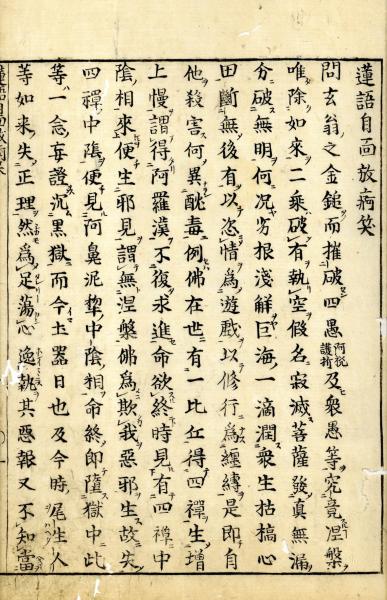 蓮語自面放痾笑
問玄翁之金鎚而摧破四愚阿梲護術及衆愚等究竟涅槃
唯除如來二乘破有執空假名寂滅菩薩發眞無漏
分破無明何况劣根淺解巨海一滴潤衆生枯槁心
田斷無後有以恣情爲遊戯以修行爲纏縛是即自
他殺害何異酖毒例佛在世有一比丘得四禪生增
上慢謂得阿羅漢不復求進命欲終時見有四禪中
陰相來便生邪見謂無涅槃佛爲欺我惡邪生故失
四禪中陰便見阿鼻泥犂中陰相命終即墮獄中此
等一念妄證沉黒獄而今土器日也及今時尾生人
等如来失正理然爲足蕩心逸執其惡報又不知當